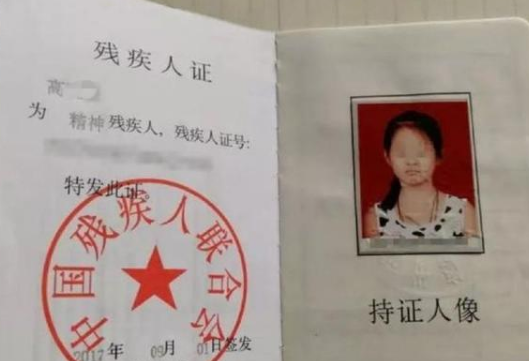 残疾人证
高
为 精神 残疾人，残疾人证号:
特发此证。
中国残疾人联合会
2017年 09月 01日签发
持证人像